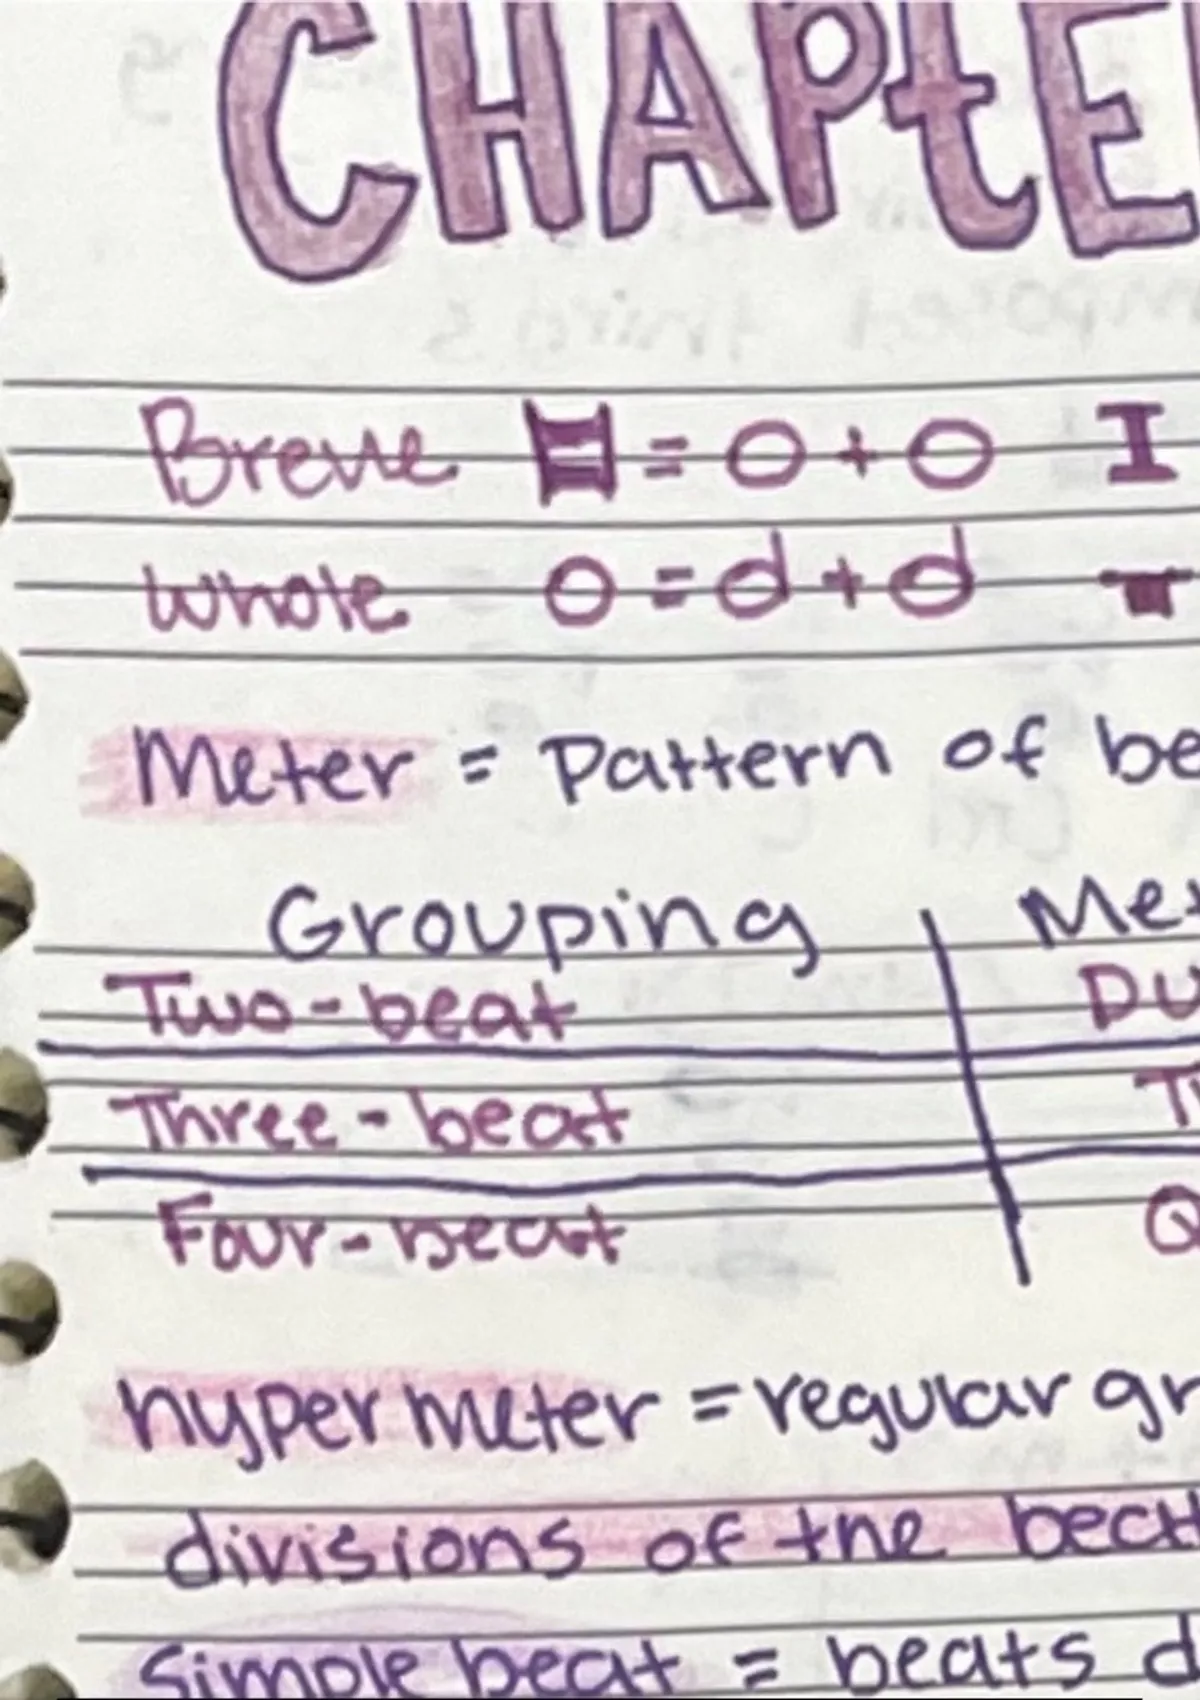 CHAPtE
Breve = O + O
Whole O = d + d
Meter = Pattern of be
Grouping Met
Two-beat DU
Three-beat Tr
Four-beat Q
hypermeter = regular gr
divisions of the beat
Simple beat = beats d